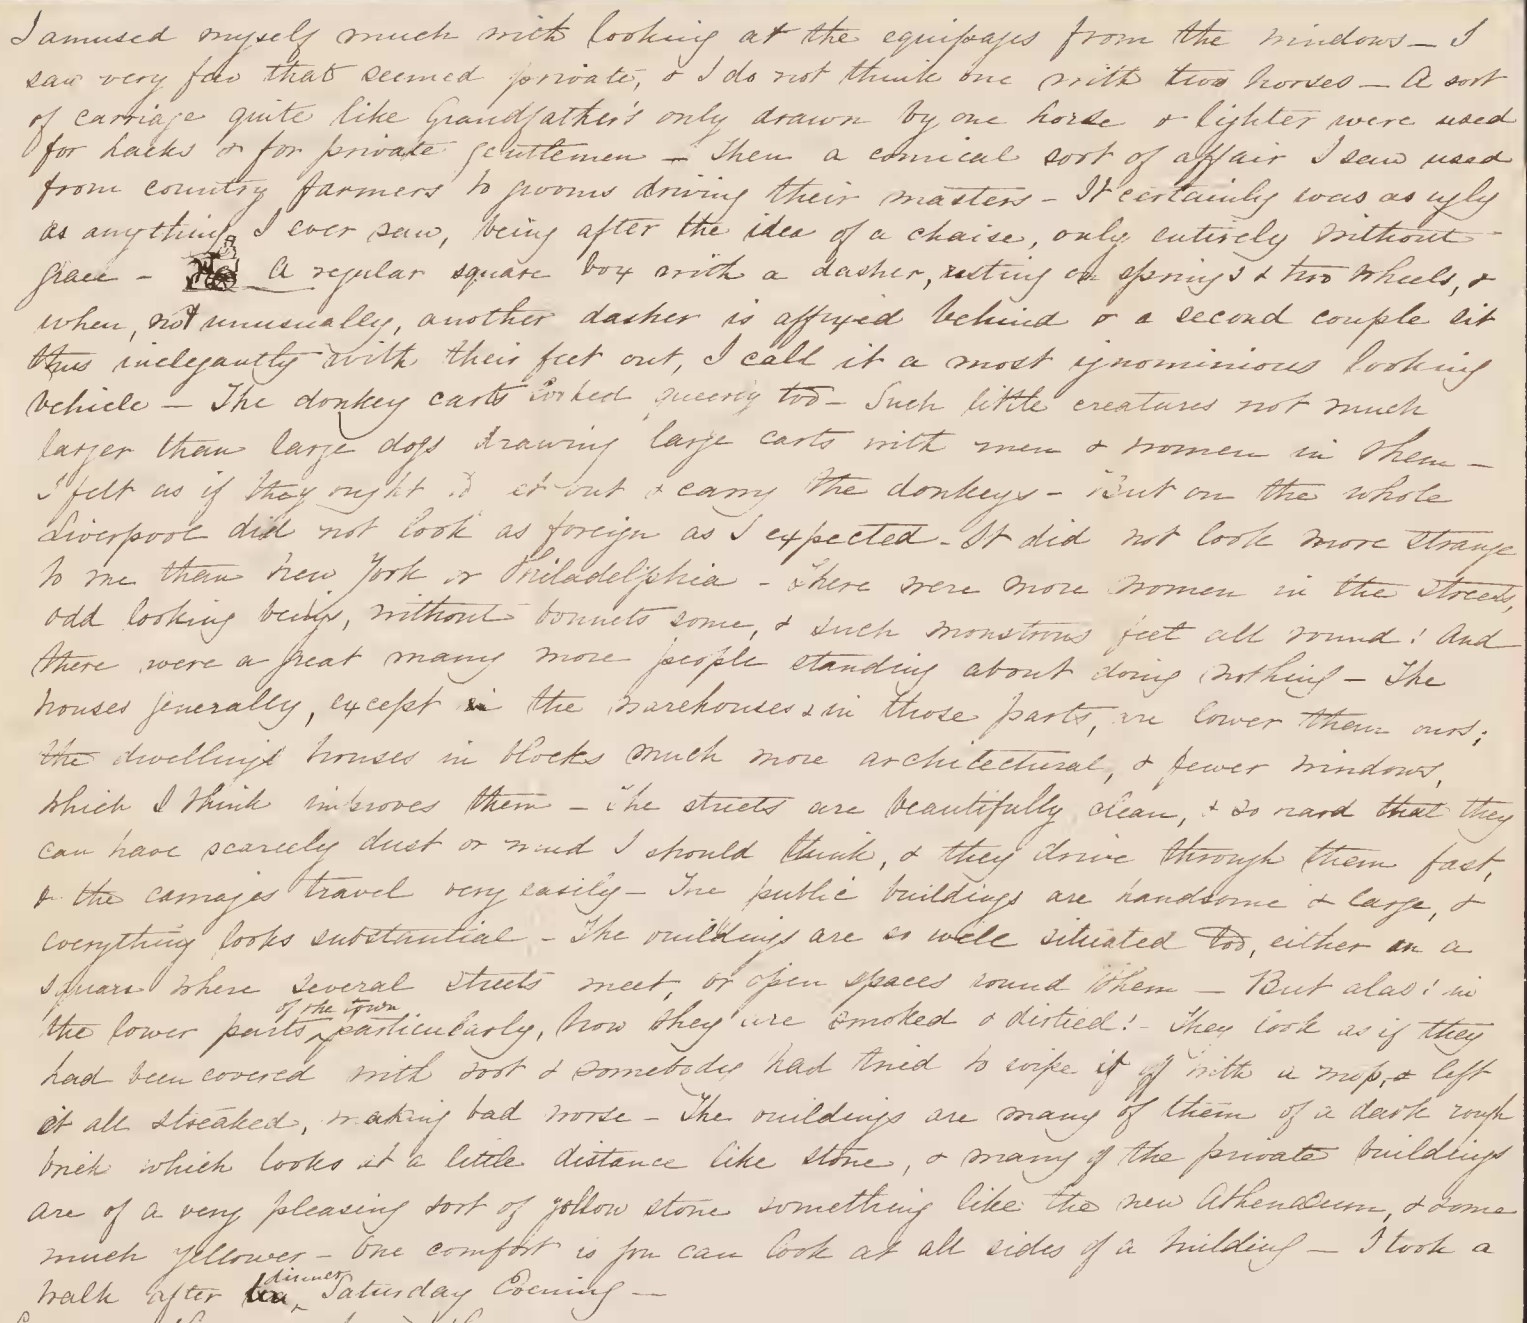 I amused myself much with looking at the equipages from the windows — I
saw very few that seemed private, & I do not think one with two horses — A sort
of carriage quite like Grandfather's only drawn by one horse & lighter were used
for hacks & for private gentlemen — Then a comical sort of affair I saw used
from country farmers to grooms driving their masters — It certainly was as ugly
as anything I ever saw, being after the idea of a chaise, only entirely without
grace — A regular square box with a dasher, resting on springs & two wheels, &
when, not unusually, another dasher is affixed behind & a second couple sit
thus inelegantly with their feet out, I call it a most ignominious looking
vehicle — The donkey carts looked queerly too — Such little creatures not much
larger than large dogs drawing large carts with men & women in them —
I felt as if they ought to get out & carry the donkeys — But on the whole
Liverpool did not look as foreign as I expected — It did not look more strange
to me than New York or Philadelphia — There were more women in the streets,
odd looking beings, without bonnets some, & such monstrous feet all round! And
there were a great many more people standing about doing nothing — The
houses generally, except in the warehouses & in those parts, are lower than ours;
the dwellings houses in blocks much more architectural, & fewer windows,
which I think improves them — The streets are beautifully clean, & so hard that they
can have scarcely dust or mud I should think, & they drive through them fast,
& the carriages travel very easily — The public buildings are handsome & large, &
everything looks substantial — The buildings are so well situated too, either in a
square where several streets meet, or open spaces round them — But alas! in
the lower parts of the town particularly, how they are smoked & dirtied! — They look as if they
had been covered with soot & somebody had tried to wipe it off with a mop, & left
it all streaked, making bad worse — The buildings are many of them of a dark rough
brick which looks at a little distance like stone, & many of the private buildings
are of a very pleasing sort of yellow stone something like the new Athenaeum, & some
much yellower — One comfort is you can look at all sides of a building — I took a
walk after tea dinner Saturday Evening —